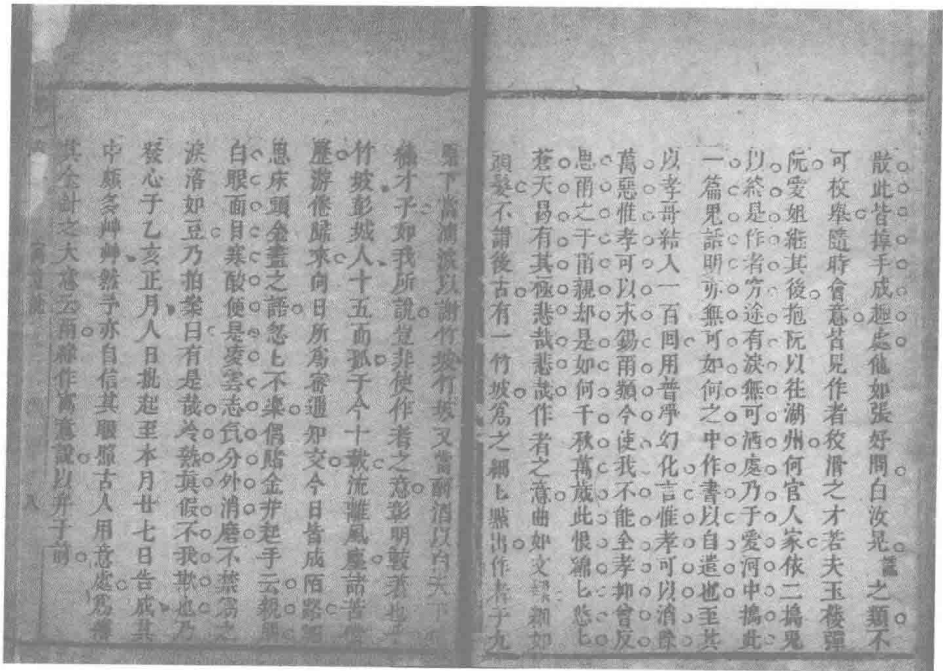 散此皆掉手成趣處他如張好問白汝晃謊之類不
可枚舉隨時會意皆見作者狡滑之才若夫玉樓彈
阮愛姐継其後抱阮以往湖州何官人家依二搗鬼
以終是作者穷途有淚無可洒處乃于愛河中搗此
一篇鬼話明亦無可如何之中作書以自遣也至其
以孝哥結入一百回用普淨幻化言惟孝可以消除
萬惡惟孝可以永錫爾類今使我不能全孝抑曾反
思爾之于爾親却是如何千秋萬歲此恨綿匕悠匕
蒼天曷有其極悲哉悲哉作者之意曲如文螺細如
頭髮不謂後古有一竹坡爲之細匕點出作者于九
原下當滴淚以謝竹坡竹坡又當酹酒以白天下
才子如我所說豈非使作者之意彰明較著也乎
竹坡彭城人十五而孤于今十載流離風塵諸苦備
歷游倦歸來向日所爲密邇知交今日皆成陌路細
思床頭金盡之語忽匕不樂偶睹金非起手云親朋
白眼面目寒酸便是凌雲志氣分外消磨不禁爲之
淚落如豆乃拍案曰有是哉冷熱真假不我欺也乃
發心于乙亥正月人日批起至本月廿七日告成其
中頗多艸艸然予亦自信其眼照古人用意處爲傳
其金針之大意云爾緣作寓意說以弁于前
八